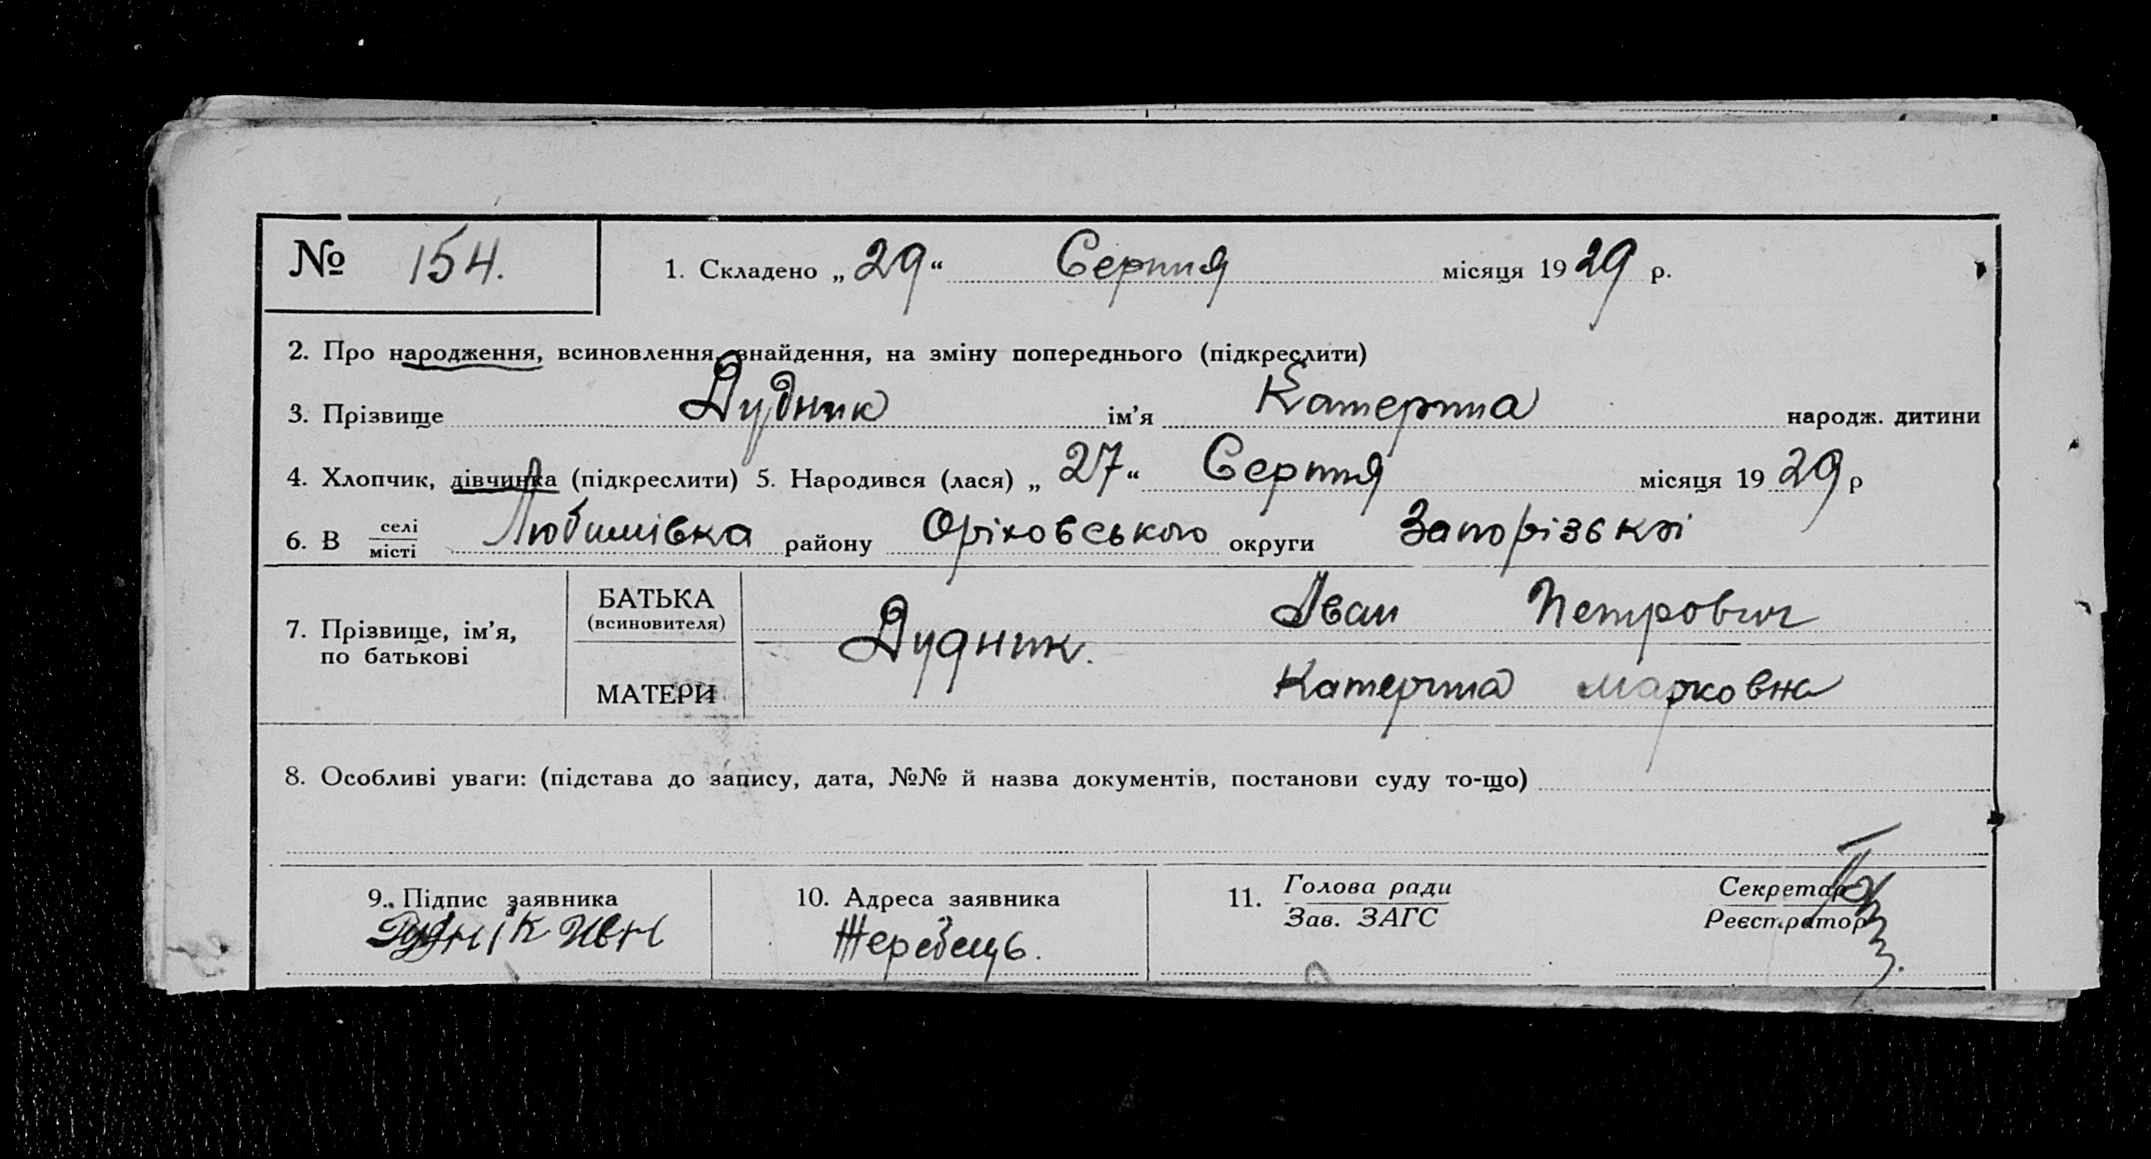 № 154. 1. Складено „29“ Серпня місяця 1929 р.
2. Про народження, всиновлення, знайдення, на зміну попереднього (підкреслити)
3. Прізвище Дудник ім’я Катерина народж. дитини
4. Хлопчик, дівчинка (підкреслити) 5. Народився (лася) „27“ Серпня місяця 1929 р
6. В селі місті Любимівка району Оріховського округи Запорізької
7. Прізвище, ім’я, по батькові
БАТЬКА (всиновителя) Дудник. Іван Петрович
МАТЕРИ Катерина Марковна
8. Особливі уваги: (підстава до запису, дата, №№ й назва документів, постанови суду то-що)
9. Підпис заявника 10. Адреса заявника 11. Голова ради Секретар
Зав. ЗАГС Реєстратор
Дуднік Ивн Жеребець.